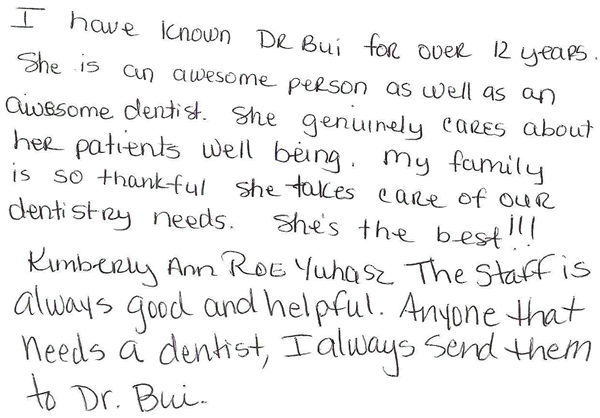 I have known DR Bui for over 12 years.
She is an awesome person as well as an
awesome dentist. She genuinely cares about
her patients well being. My family
is so thankful she takes care of our
dentistry needs. She's the best!!!
Kimberly Ann Roe Yuhasz The Staff is
always good and helpful. Anyone that
needs a dentist, I always send them
to Dr. Bui.